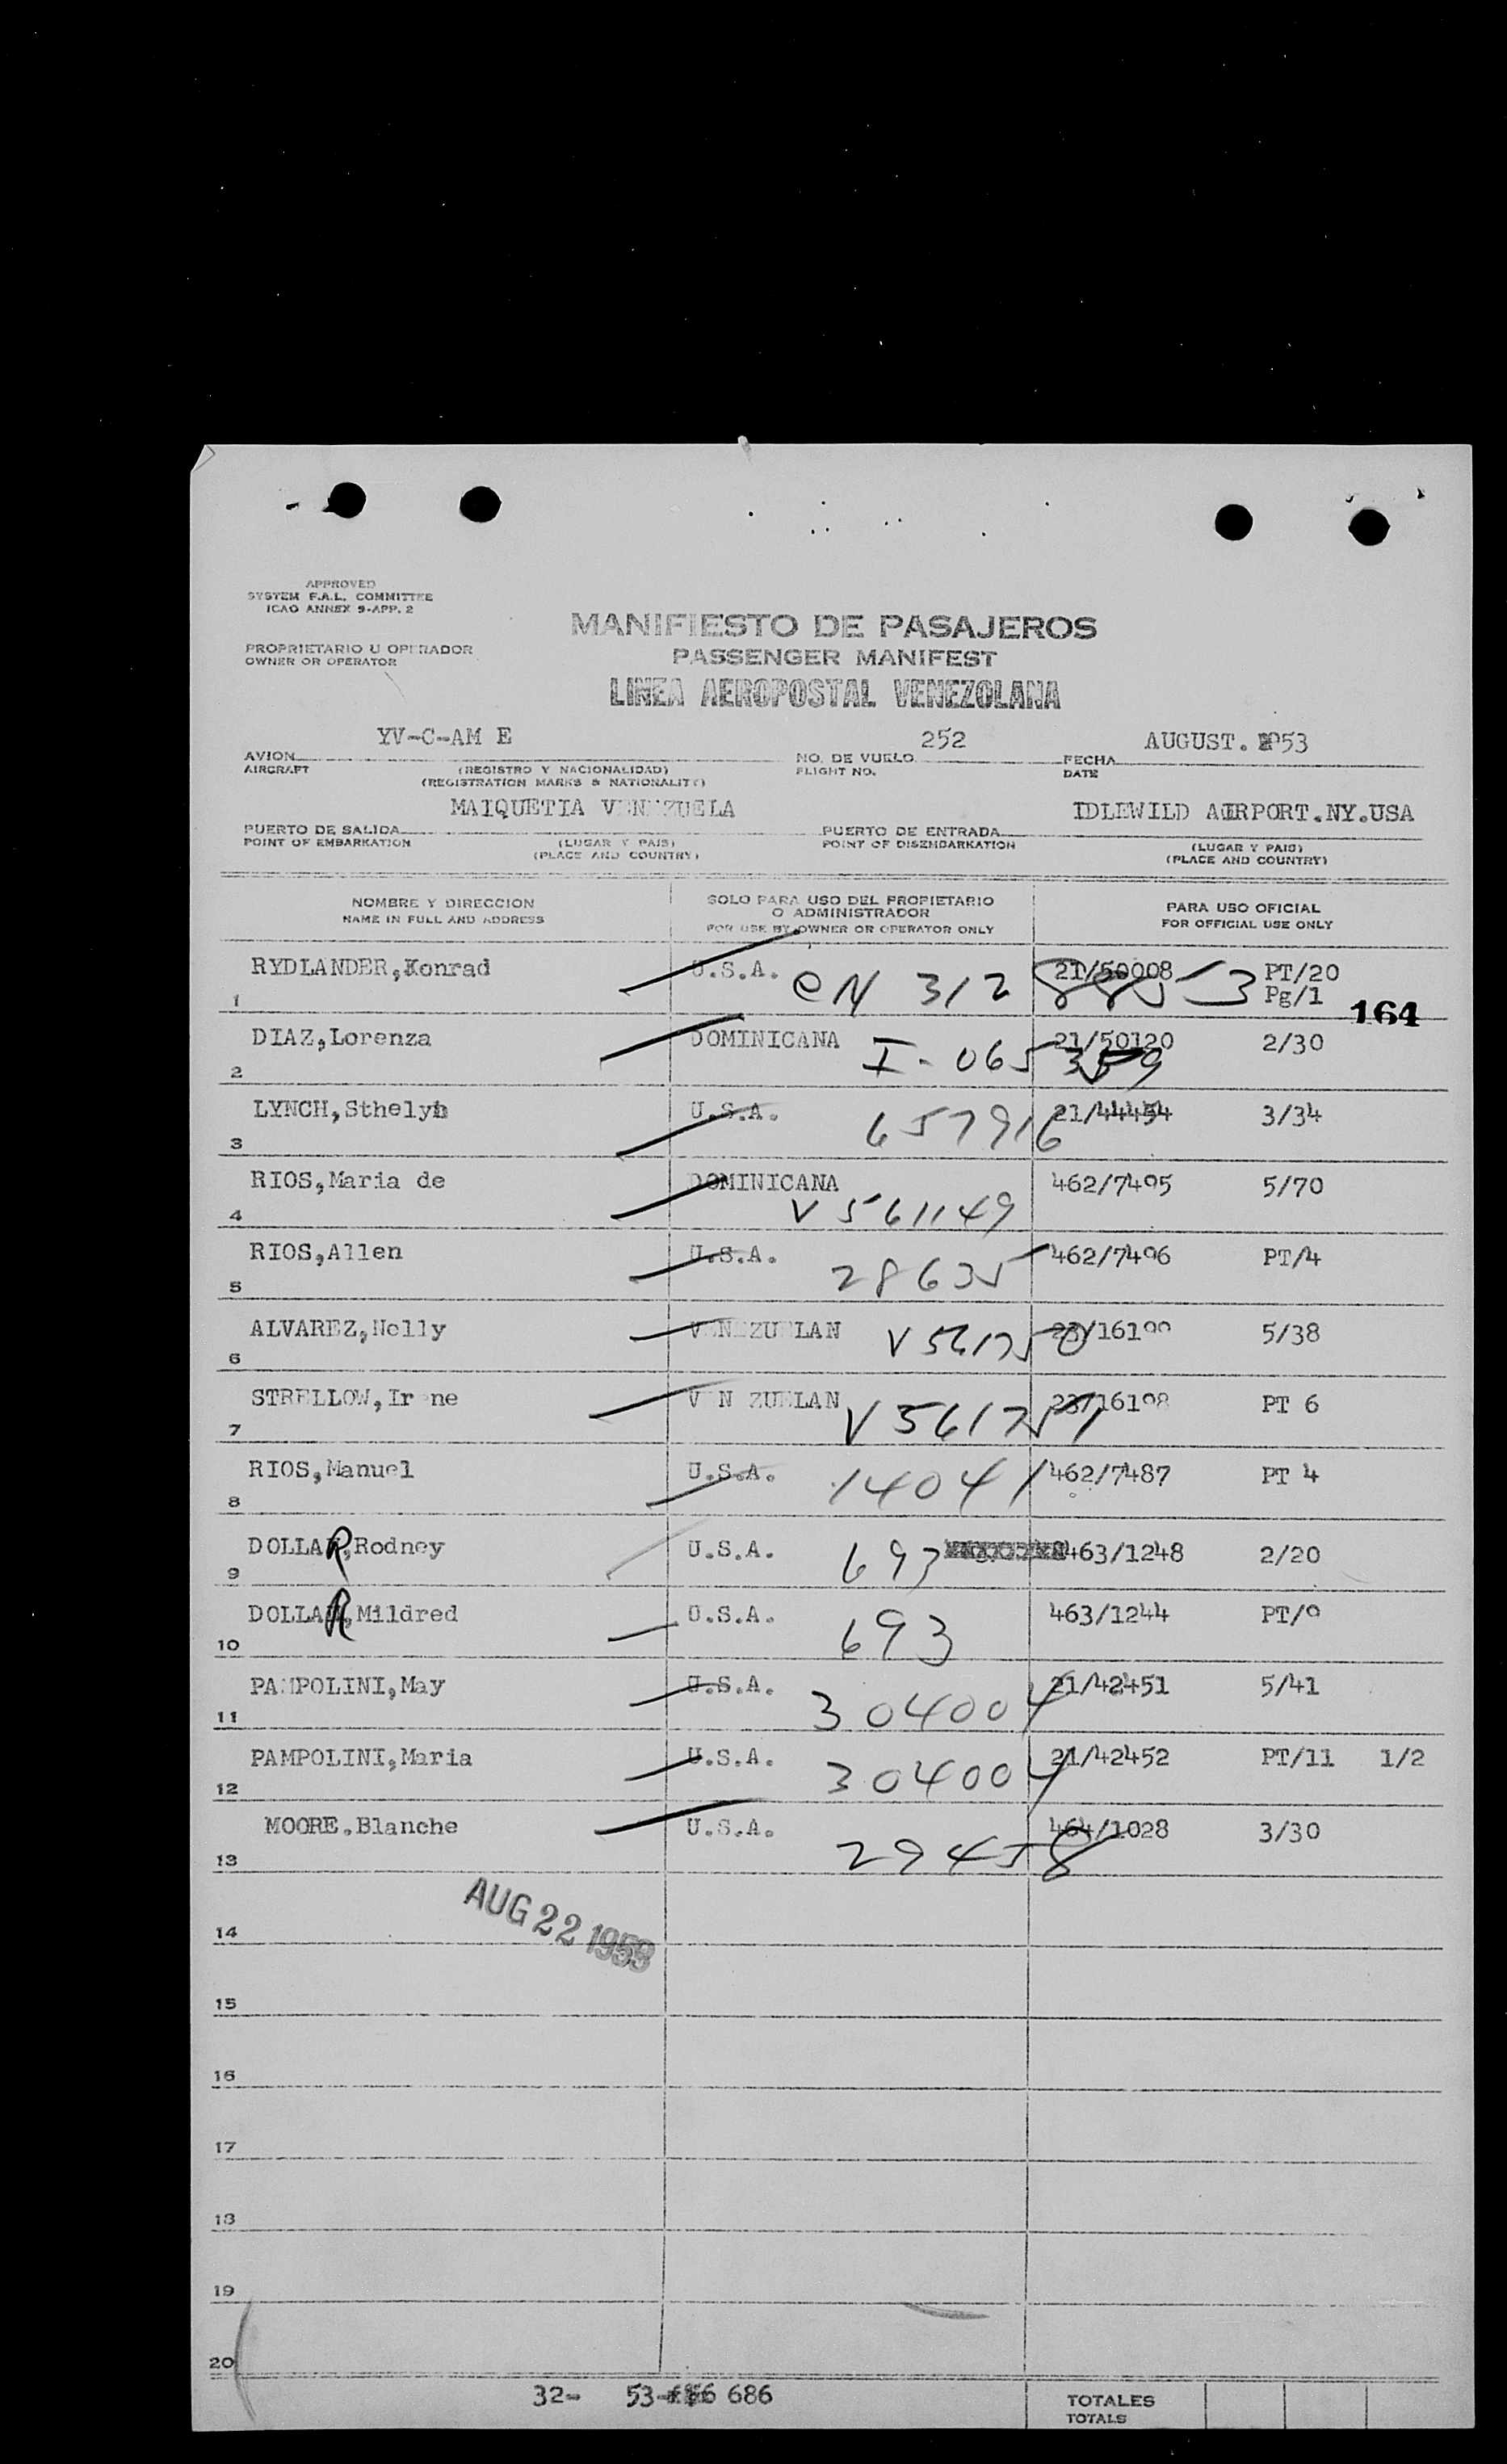 APPROVED
SYSTEM F.A.L. COMMITTEE
ICAO ANNEX 9-APP. 2
MANIFIESTO DE PASAJEROS
PROPRIETARIO U OPERADOR
OWNER OR OPERATOR
PASSENGER MANIFEST
LINEA AEROPOSTAL VENEZOLANA
YV-C-AM E 252 AUGUST. 1953
AVION NO. DE VUELO FECHA
AIRCRAFT (REGISTRO Y NACIONALIDAD) FLIGHT NO. DATE
(REGISTRATION MARKS & NATIONALITY)
MAIQUETIA VENEZUELA IDLEWILD AIRPORT.NY.USA
PUERTO DE SALIDA PUERTO DE ENTRADA
POINT OF EMBARKATION (LUGAR Y PAIS) POINT OF DISEMBARKATION (LUGAR Y PAIS)
(PLACE AND COUNTRY) (PLACE AND COUNTRY)
NOMBRE Y DIRECCION SOLO PARA USO DEL PROPIETARIO O ADMINISTRADOR PARA USO OFICIAL
NAME IN FULL AND ADDRESS FOR USE BY OWNER OR OPERATOR ONLY FOR OFFICIAL USE ONLY
1 RYDLANDER,Konrad U.S.A. CN 312 21/50008 PT/20
Pg/1 164
2 DIAZ,Lorenza DOMINICANA 21/50120 2/30
3 LYNCH,Sthelyn U.S.A. 657916 21/44454 3/34
4 RIOS,Maria de DOMINICANA V 561149 462/7495 5/70
5 RIOS,Allen U.S.A. 28635 462/7496 PT/4
6 ALVAREZ,Nelly VENEZUELAN V 561750 23/16199 5/38
7 STRELLOW,Irene VENEZUELAN V 561751 23/16198 PT 6
8 RIOS,Manuel U.S.A. 14041 462/7487 PT 4
9 DOLLAR,Rodney U.S.A. 693 463/1248 2/20
10 DOLLAR,Mildred U.S.A. 693 463/1244 PT/9
11 PAMPOLINI,May U.S.A. 304004 21/42451 5/41
12 PAMPOLINI,Maria U.S.A. 304004 21/42452 PT/11 1/2
13 MOORE.Blanche U.S.A. 29458 464/1028 3/30
AUG 22 1953
14
15
16
17
18
19
20
32- 53- 686
TOTALES
TOTALS